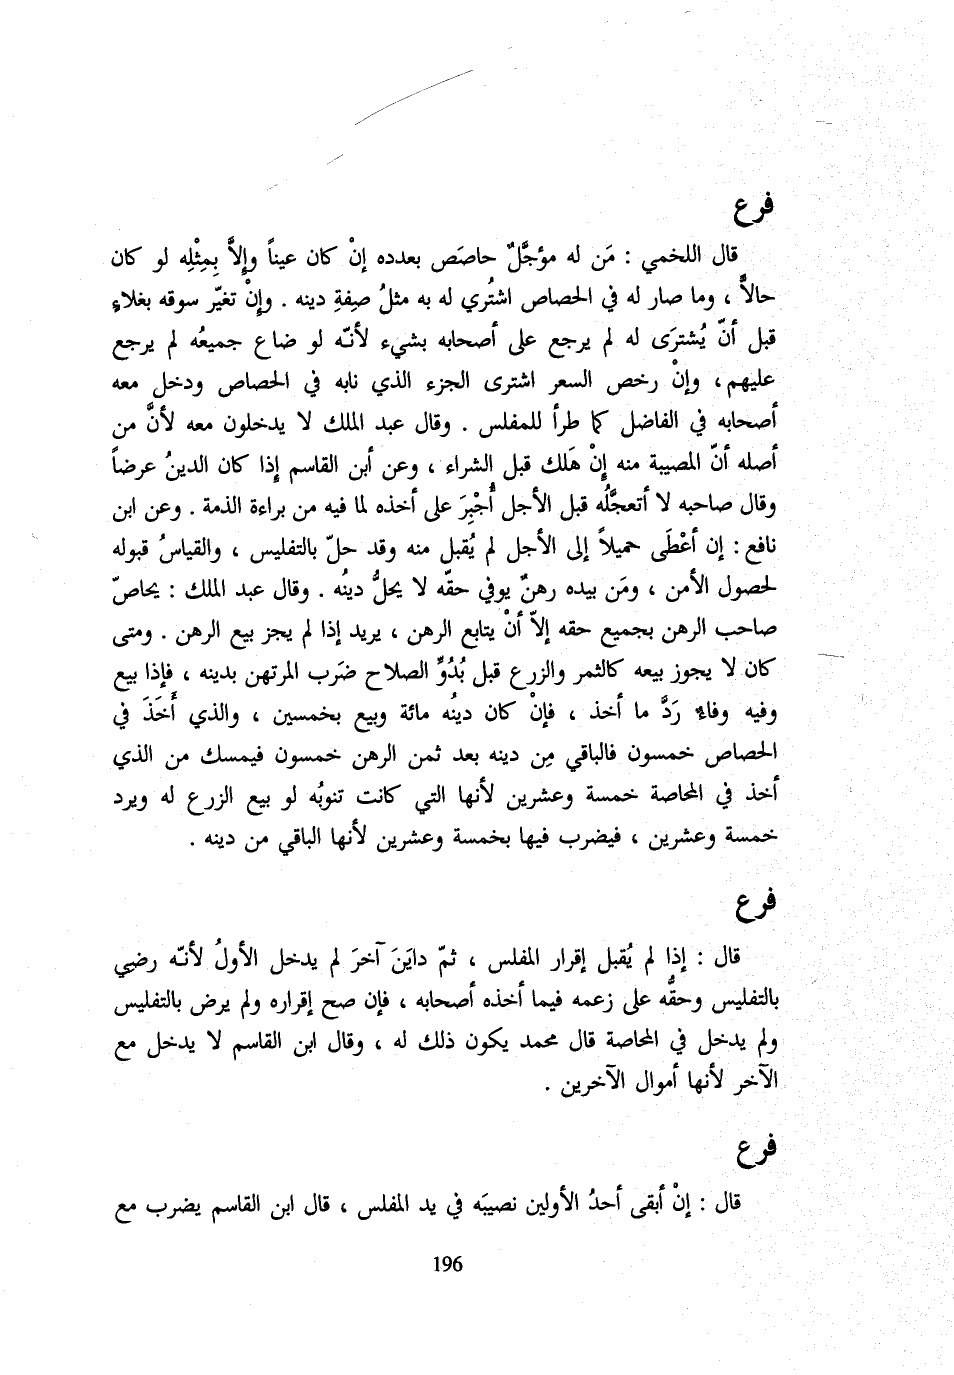 فرع
قال اللخمي : مَن له مؤجَّلٌ حاصَص بعدده إنْ كان عيناً وإلاَّ بِمِثْلِه لو كان
حالاًّ ، وما صار له في الحصاص اشتُري له به مثلُ صِفةِ دينه . وإنْ تغيّر سوقه بغلاءٍ
قبل أنّ يُشترَى له لم يرجع على أصحابه بشيء لأنّه لو ضاع جميعُه لم يرجع
عليهم ، وإنْ رخص السعر اشترى الجزء الذي نابه في الحصاص ودخل معه
أصحابه في الفاضل كما طرأ للمفلس . وقال عبد الملك لا يدخلون معه لأنَّ من
أصله أنّ المصيبة منه إنْ هَلك قبل الشراء ، وعن أبن القاسم إذا كان الدينُ عرضاً
وقال صاحبه لا أتعجَّلُه قبل الأجل أُجْبِرَ على أخذه لما فيه من براءة الذمة . وعن ابن
نافع : إن أعْطَى حميلاً إلى الأجل لم يُقبل منه وقد حلّ بالتفليس ، والقياسُ قبوله
لحصول الأمن ، ومَن بيده رهنٌ يوفي حقّه لا يحلُّ دينُه . وقال عبد الملك : يحاصّ
صاحب الرهن بجميع حقه إلاّ أنْ يتابع الرهن ، يريد إذا لم يجز بيع الرهن . ومتى
كان لا يجوز بيعه كالثمر والزرع قبل بُدُوِّ الصلاح ضَرب المرتهن بدينه ، فإذا بيع
وفيه وفاءٌ رَدَّ ما أخذ ، فإنْ كان دينُه مائة وبيع بخمسين ، والذي أَخَذَ في
الحصاص خمسون فالباقي مِن دينه بعد ثمن الرهن خمسون فيمسك من الذي
أخذ في المحاصة خمسة وعشرين لأنها التي كانت تنوبُه لو بيع الزرع له ويرد
خمسة وعشرين ، فيضرب فيها بخمسة وعشرين لأنها الباقي من دينه .
فرع
قال : إذا لم يُقبل إقرار المفلس ، ثمّ دايَنَ آخرَ لم يدخل الأولُ لأنّه رضي
بالتفليس وحقُّه على زعمه فيما أخذه أصحابه ، فإن صح إقراره ولم يرض بالتفليس
ولم يدخل في المحاصة قال محمد يكون ذلك له ، وقال ابن القاسم لا يدخل مع
الآخر لأنها أموال الآخرين .
فرع
قال : إنْ أبقى أحدُ الأولين نصيبَه في يد المفلس ، قال ابن القاسم يضرب مع
196